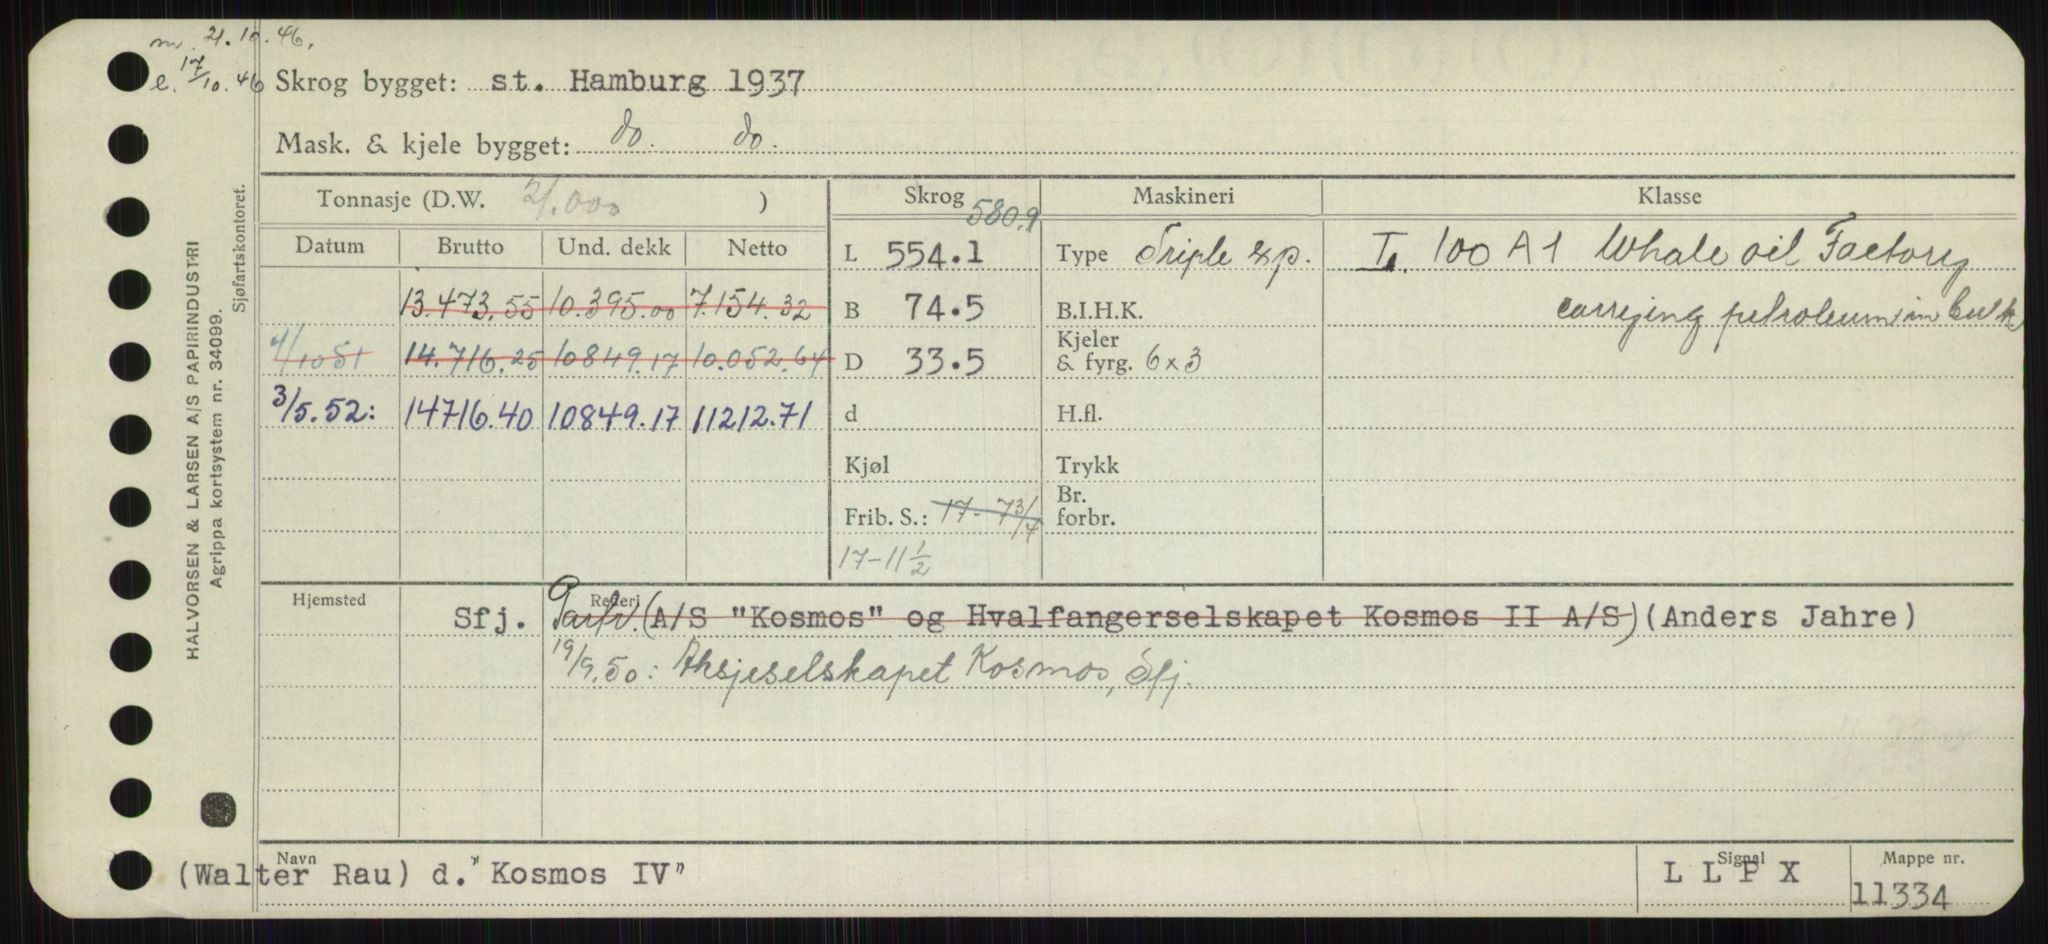 m. 21.10.46.
e. 17/10.46
Skrog bygget: st. Hamburg 1937
Mask. & kjele bygget: do. do.
HALVORSEN & LARSEN A/S PAPIRINDUSTRI
Agrippa kortsystem nr. 34099.
Sjøfartskontoret.
Tonnasje (D.W. 21.000 )
Skrog 580.9
Maskineri
Klasse
Datum Brutto Und. dekk Netto
L 554.1
Type Triple exp.
I. 100 A 1 Whale oil Factory
13.473.55 10.395.00 7.154.32
B 74.5
B.I.H.K.
carrying petroleum in bulk
4/10 51 14.716.25 10849.17 10.052.64
D 33.5
Kjeler
& fyrg. 6 x 3
3/5.52: 14716.40 10849.17 11212.71
d
H.fl.
Kjøl
Trykk
Frib. S.: 17-7 3/4
Br.
forbr.
17-11 1/2
Hjemsted
Rederi
Sfj. Partr. (A/S "Kosmos" og Hvalfangerselskapet Kosmos II A/S) (Anders Jahre)
19/9.50: Aksjeselskapet Kosmos, Sfj.
Navn
(Walter Rau) d. "Kosmos IV"
Signal
L L P X
Mappe nr.
11334